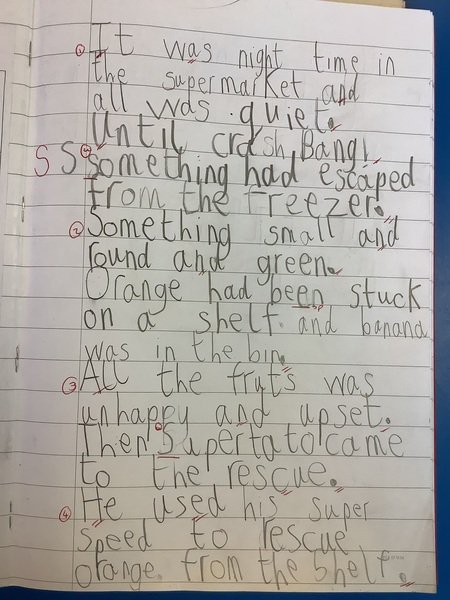 ① It was night time in
the supermarket and
all was quiet.
Until, crash, Bang!
S S ④ something had escaped
from the freezer.
② Something small and
round and green.
Orange had been stuck
on a shelf. and banana
was in the bin.
③ All the fruts was
unhappy and upset.
Then Supertato came
to the rescue.
④ He used his super
speed to rescue
orange. from the Shelf.